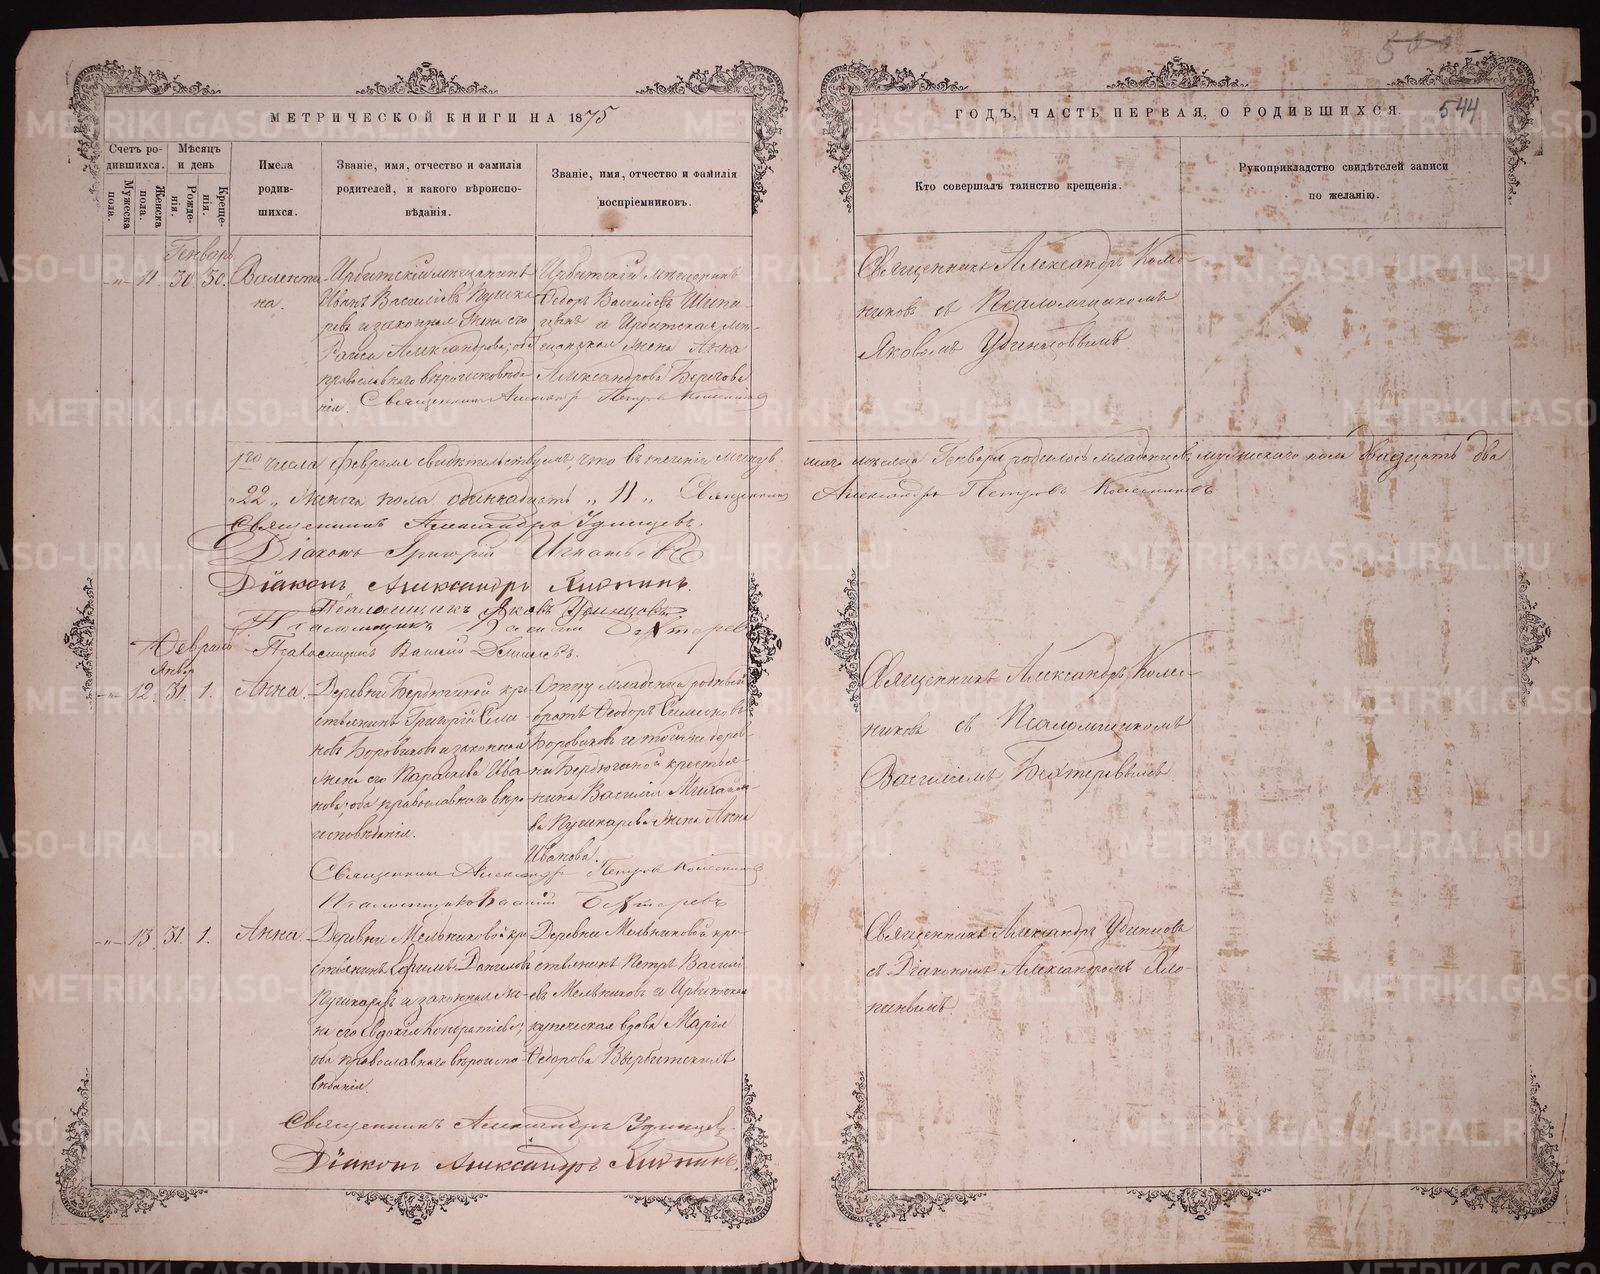 544
МЕТРИЧЕСКОЙ КНИГИ НА 1875
ГОДЪ, ЧАСТЬ ПЕРВАЯ, О РОДИВШИХСЯ.
Счетъ ро-
дившихся.
Мужеска
пола.
Женска
пола.
Мѣсяцъ
и день
Рожде-
нія.
Креще-
нія.
Имена
родив-
шихся.
Званіе, имя, отчество и фамилія
родителей, и какого вѣроиспо-
вѣданія.
Званіе, имя, отчество и фамилія
воспріемниковъ.
Кто совершалъ таинство крещенія.
Рукоприкладство свидѣтелей записи
по желанію.
Генварь
-"- 11. 30. 30. Валенти
на.
Ирбитскій мѣщанинъ
Иванъ Василіевъ Пушка
ревъ и законная жена его
Раиса Александрова, оба
православнаго вѣроисповѣда
нія.
Ирбитскій мѣщанинъ
Ѳедоръ Василіевъ Шипи-
цынъ и Ирбитская мѣ-
щанская жена Анна
Александрова Бериова
Священникъ Александръ Петровъ Колесниковъ
Священникъ Александръ Колес-
никовъ съ Псаломщикомъ
Яковомъ Удинцовымъ
1го числа Февраля свидѣтельствуемъ, что въ теченіи минув
шаго мѣсяца Генваря родилось младенцевъ мужескаго пола двадцать два
"22" женска пола одиннадцать "11" Священникъ
Александръ Петровъ Колесниковъ
Священникъ Александръ Удинцевъ.
Діаконъ Григорій Игнатьевъ
Діаконъ Александръ Хлопинъ.
Псаломщикъ Яковъ Удинцовъ
Псаломщикъ Василій Бехтеревъ
Псаломщикъ Василій
Февраль
Янвр
-"- 12. 31. 1. Анна.
Деревни Бердюгиной кре-
стьянинъ Григорій Сами-
новъ Боровиковъ и законная
жена его Параскева Ива-
нова, оба православнаго вѣро-
исповѣданія.
Отцу младенца родный
братъ Ѳеодоръ
Боровиковъ и тойже дерев-
ни Бердюгиной крестья-
нина Василія Михайло-
ва Пушкарева жена Анна
Иванова.
Священникъ Александръ Петровъ Колесниковъ
Псаломщикъ Василій Бехтеревъ
Священникъ Александръ Колес-
никовъ съ Псаломщикомъ
Василіемъ Бехтеревымъ
-"- 13. 31. 1. Анна.
Деревни Мельниковой кре
стьянинъ Ефимъ Даниловъ
Пушкаревъ и законная же-
на его Евдокія Кондратіева,
оба православнаго вѣроиспо-
вѣданія.
Деревни Мельниковой кре-
стьянинъ Петръ Василі-
евъ Мельниковъ и Ирбитская
купеческая вдова Марія
Ѳедорова Вырбитская
Священникъ Александръ Удинцевъ.
Діаконъ Александръ Хлопинъ.
Священникъ Александръ Удинцовъ
съ Діакономъ Александромъ Хло-
пинымъ.
METRIKI.GASO-URAL.RU